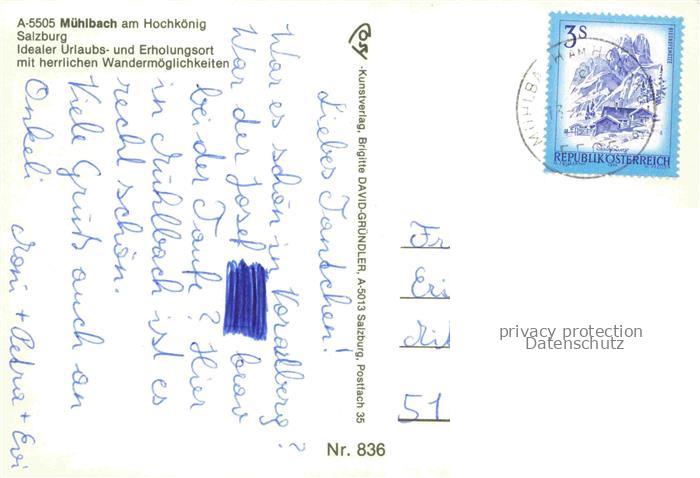 A-5505 Mühlbach am Hochkönig
Salzburg
Idealer Urlaubs- und Erholungsort
mit herrlichen Wandermöglichkeiten
Liebes Tantschen!
War es schön in Vorarlberg?
War der Josef brav
bei der Taufe? Hier
in Mühlbach ist es
recht schön.
Viele Grüße auch an
Onkeli
Moni + Petra + Evi
Cosy -Kunstverlag, Brigitte DAVID-GRÜNDLER, A-5013 Salzburg, Postfach 35
Nr. 836
3 S
REPUBLIK ÖSTERREICH
Fr
Eri
51
privacy protection
Datenschutz